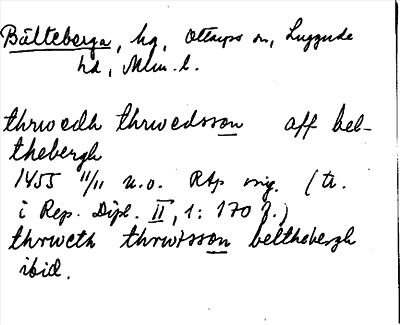 Bälteberga, hg, Ottarps sn, Luggude
hd, Mlm. l.
thrwedh thrwedsson aff bel-
thebergh
1455 11/11 u.o. Rep orig. (tr.
i Rep. Dipl. II, 1: 170 f.)
thrweth thrwtsson belthebergh
ibid.